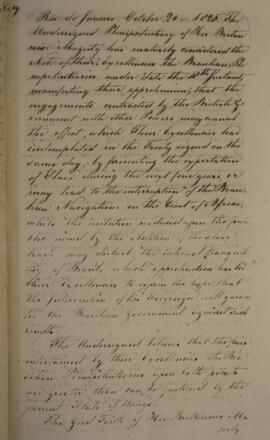 Copy
Rio de Janeiro October 24 – 1826. The
Undersigned Plenipotentiary of His Britan
nic Majesty has maturely considered the
Note of their Excellencies the Brazilian Ple
nipotentiaries under date the Instant,
manifesting their apprehension, that the
engagements contracted by the British Go
vernment with other Powers, may annul
the effect, which Their Excellencies had
contemplated in the Treaty signed on the
same day, by preventing the exportation
of Slaves during the next four years, or
may lead to the interruption of the Brazi
lian Navigations on the Coast of Africa,
while the irritation produced upon the pu
blic mind by the abolition of the slave
trade may disturb the internal tranquil
lity of Brazil, which apprehension has led
their Excellencies to express the hope that
the Intervention of his Sovereign will guaran
the Brazilian Government against such
results.
The Undersigned believes that the
entertained by their Excellencies the Bra
zilian Plenipotentiaries upon both points
no greater than can be justified by the
present State of things.
The good Faith of His Britannic Ma
jesty